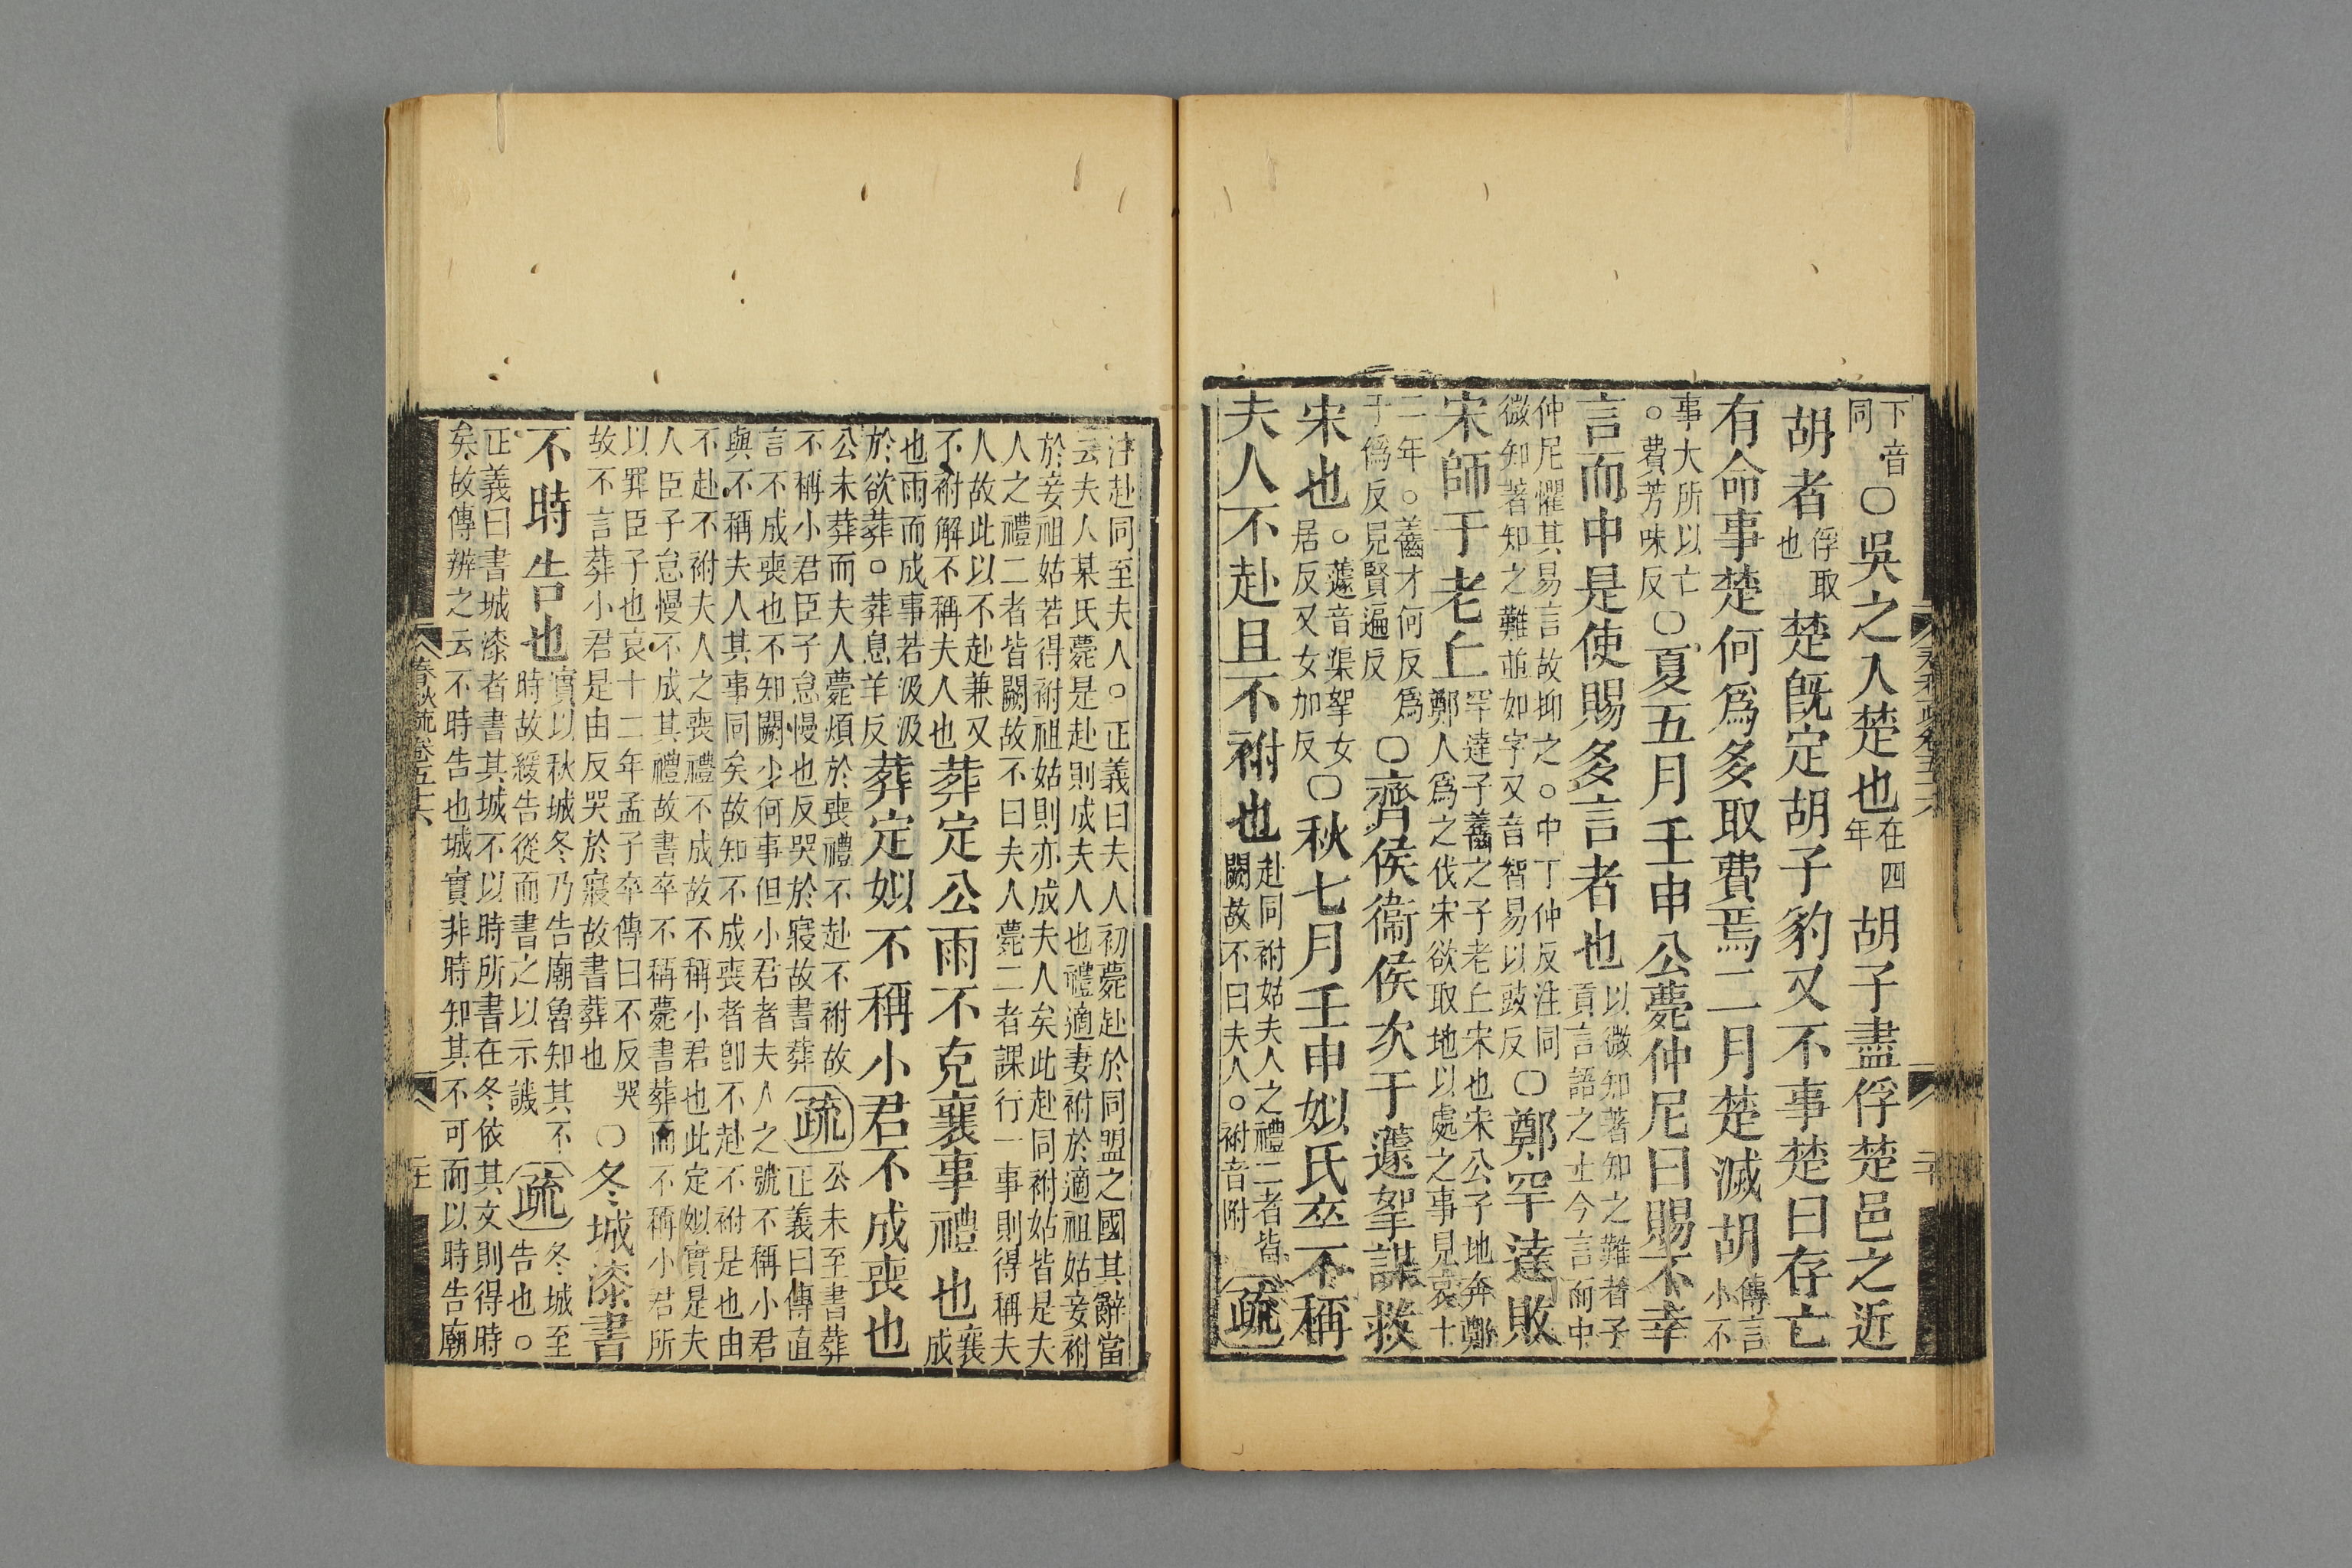 下音同〇吳之入楚也在四年胡子盡俘楚邑之近
胡者俘取也楚旣定胡子豹又不事楚曰存亡
有命事楚何爲多取費焉二月楚滅胡傳言小不
事大所以亡。費芳味反〇夏五月壬申公薨仲尼曰賜不幸
言而中是使賜多言者也以微知著知之難者子貢言語之士今言而中
仲尼懼其易言故抑之。中丁仲反注同微知著知之難並如字又音智易以豉反〇鄭罕達敗
宋師于老丘罕達子齹之子老丘宋也宋公子地奔鄭鄭人爲之伐宋欲取地以處之事見哀十
二年。齹才何反爲于僞反見賢遍反〇齊侯衞侯次于蘧挐謀救
宋也。蘧音渠挐女居反又女加反〇秋七月壬申姒氏卒不稱
夫人不赴且不祔也赴同祔姑夫人之禮二者皆闕故不曰夫人。祔音附疏
注赴同至夫人。正義曰夫人初薨赴於同盟之國其辭當
云夫人某氏薨是赴則成夫人也禮適妻祔於適祖姑妾祔
於妾祖姑若得祔祖姑則亦成夫人矣此赴同祔姑皆是夫
人之禮二者皆闕故不曰夫人薨二者課行一事則得稱夫
人故此以不赴兼又不祔解不稱夫人也葬定公雨不克襄事禮也襄成
也雨而成事若汲汲於欲葬。葬息羊反葬定姒不稱小君不成喪也
公未葬而夫人薨煩於喪禮不赴不祔故不稱小君臣子怠慢也反哭於寢故書葬疏公未至書葬正義曰傳直
言不成喪也不知闕少何事但小君者夫人之號不稱小君
與不稱夫人其事同矣故知不成喪者卽不赴不祔是也由
不赴不祔夫人之喪禮不成故不稱小君也此定姒實是夫
人臣子怠慢不成其禮故書卒不稱薨書葬而不稱小君所
以罪臣子也哀十二年孟子卒傳曰不反哭故不言葬小君是由反哭於寢故書葬也〇冬城漆書
不時告也實以秋城冬乃告廟魯知其不時故緩告從而書之以示譏疏冬城至告也。
正義曰書城漆者書其城不以時所書在冬依其文則得時
矣故傳辨之云不時告也城實非時知其不可而以時告廟
春秋疏卷五十六